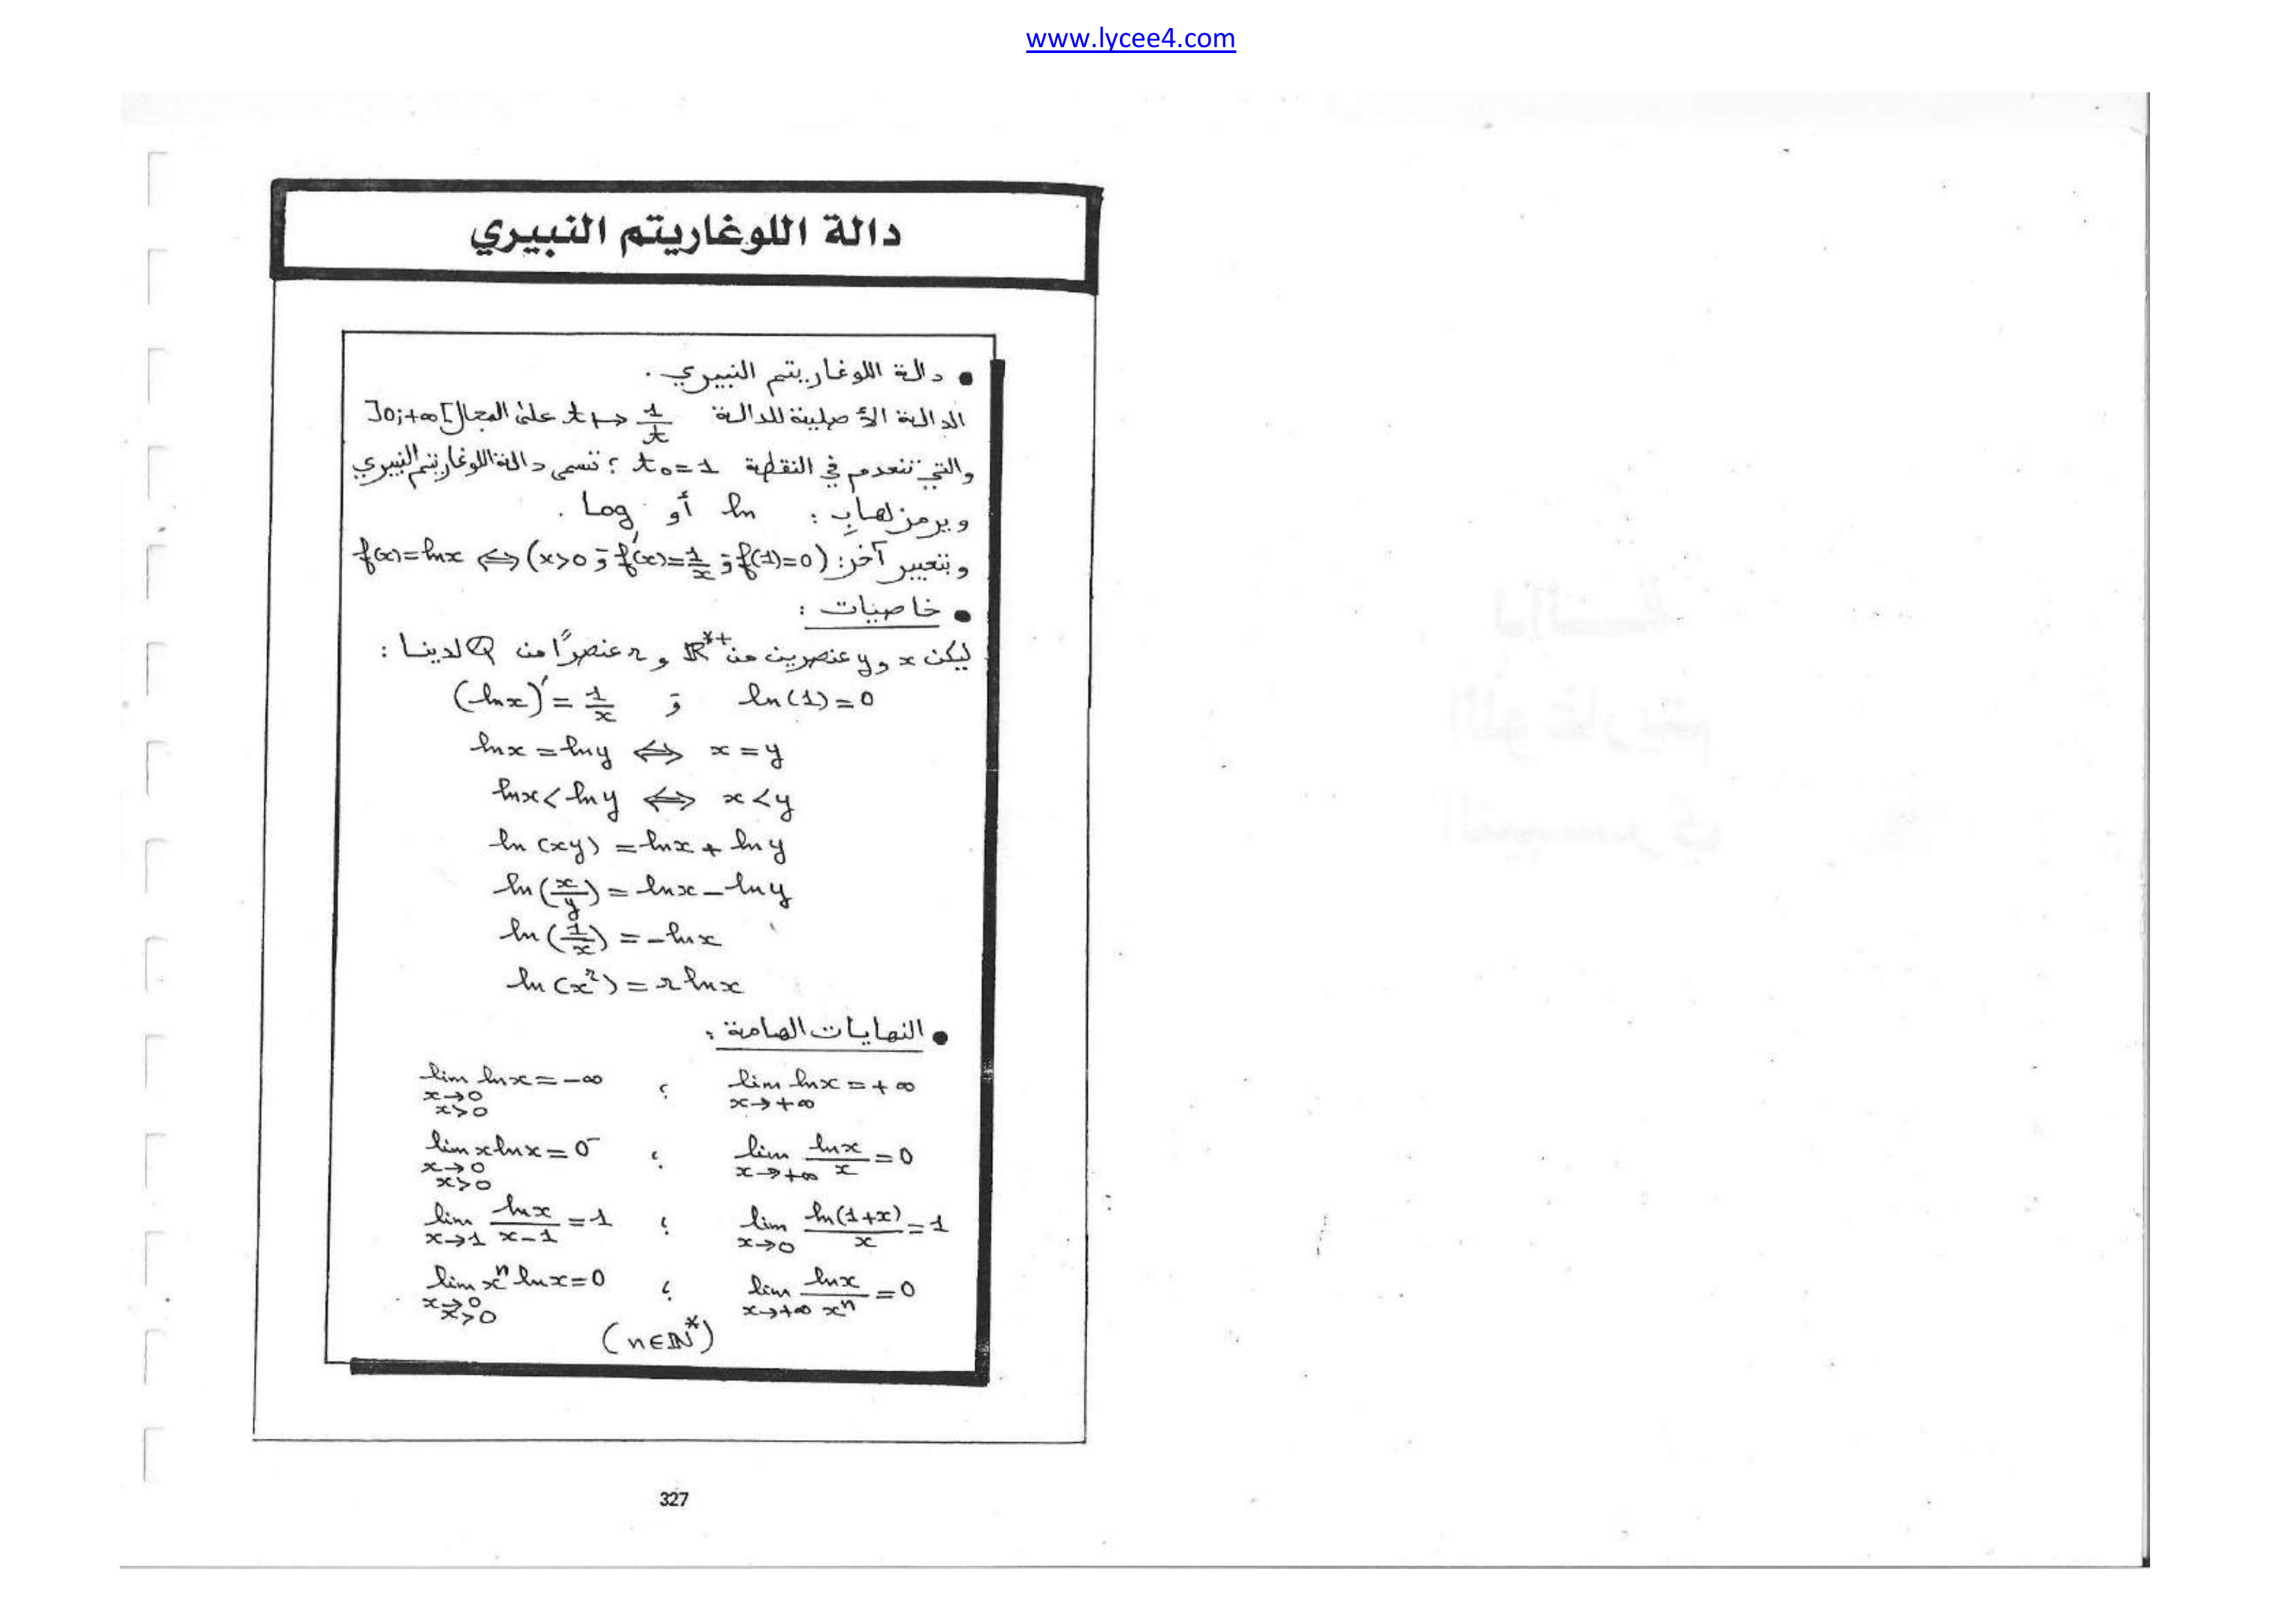 www.lycee4.com
دالة اللوغاريتم النبيري
• دالة اللوغاريتم النبيري .
الدالة الأصلية للدالة t ↦ 1/t على المجال ]0;+∞[
والتي تنعدم في النقطة t₀=1 ؛ تسمى دالة اللوغاريتم النبيري
ويرمز لها بِ : ln أو Log .
وبتعبير آخر: f(x)=lnx ⟺ (x>0 وَ f'(x)=1/x وَ f(1)=0)
• خاصيات :
ليكن x و y عنصرين من ℝ*⁺ و r عنصرًا من ℚ لدينا :
ln(1)=0 وَ (lnx)'=1/x
lnx=lny ⟺ x=y
lnx<lny ⟺ x<y
ln(xy)=lnx+lny
ln(x/y)=lnx-lny
ln(1/x)=-lnx
ln(xʳ)=r lnx
• النهايات الهامة :
lim lnx=+∞ x→+∞ ؛ lim lnx=-∞ x→0 x>0
lim lnx/x=0 x→+∞ ؛ lim xlnx=0⁻ x→0 x>0
lim ln(1+x)/x=1 x→0 ؛ lim lnx/(x-1)=1 x→1
lim lnx/xⁿ=0 x→+∞ ؛ lim xⁿlnx=0 x→0 x>0
(n∈ℕ*)
327